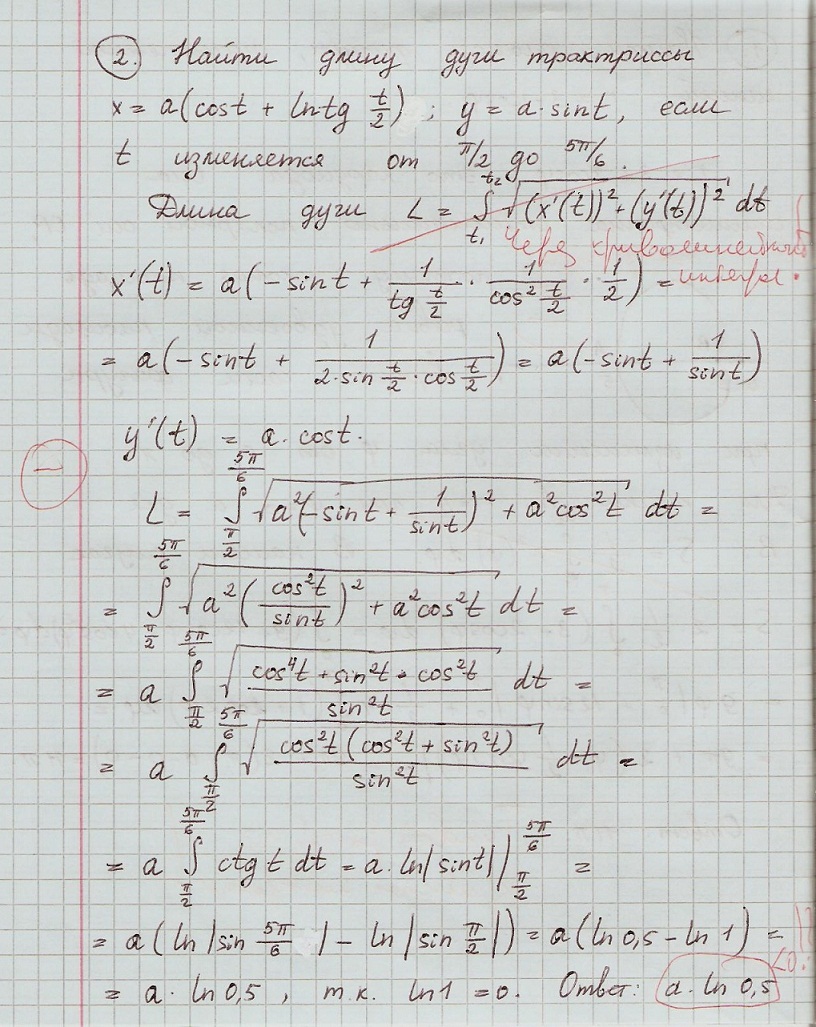 2. Найти длину дуги трактриссы
x = a(cost + ln tg t/2) ; y = a·sint, если
t изменяется от π/2 до 5π/6.
Длина дуги L = ∫_{t₁}^{t₂} √((x'(t))² + (y'(t))²) dt
Через криволинейный
интеграл.
x'(t) = a(-sint + 1/(tg t/2) · 1/(cos² t/2) · 1/2) =
= a(-sint + 1/(2·sin t/2 · cos t/2)) = a(-sint + 1/sint)
y'(t) = a·cost.
−
L = ∫_{π/2}^{5π/6} √(a²(-sint + 1/sint)² + a²cos²t) dt =
= ∫_{π/2}^{5π/6} √(a²(cos²t/sint)² + a²cos²t) dt =
= a ∫_{π/2}^{5π/6} √((cos⁴t + sin²t · cos²t)/sin²t) dt =
= a ∫_{π/2}^{5π/6} √(cos²t(cos²t + sin²t)/sin²t) dt =
= a ∫_{π/2}^{5π/6} ctg t dt = a·ln|sint| |_{π/2}^{5π/6} =
= a(ln|sin 5π/6| − ln|sin π/2|) = a(ln 0,5 − ln 1) =
= a· ln 0,5, т.к. ln1 = 0. Ответ: a·ln 0,5
<0